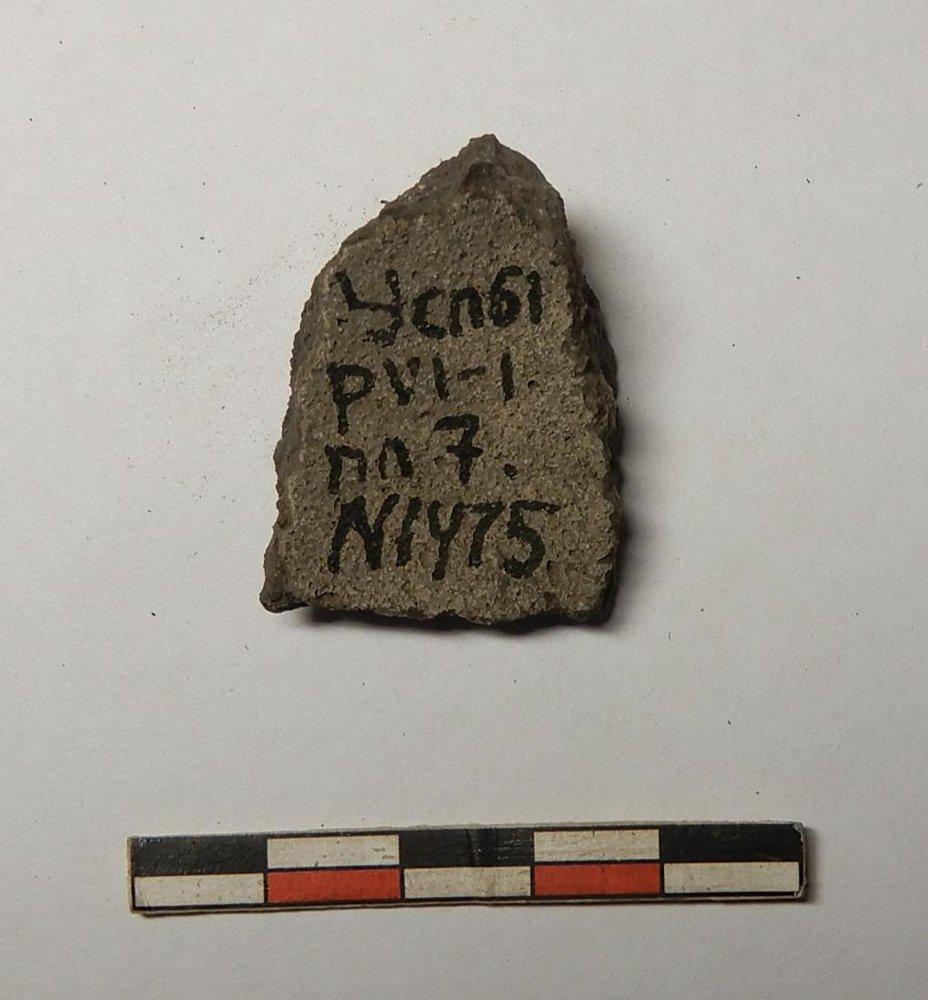 Успб1
РVI-I.
пл 7.
N1475